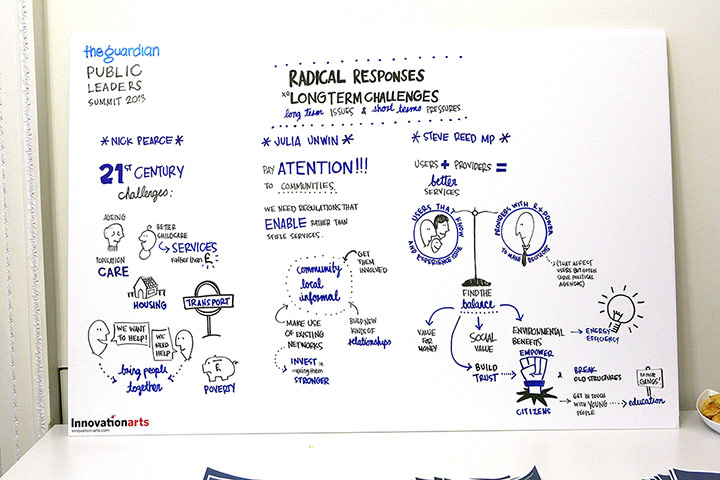 theguardian
PUBLIC
LEADERS
SUMMIT 2013
RADICAL RESPONSES
TO LONG TERM CHALLENGES
long term ISSUES & short terms PRESSURES
* NICK PEARCE *
21ST CENTURY
challenges:
AGEING
POPULATION
CARE
BETTER
CHILDCARE
SERVICES
rather than £
HOUSING
TRANSPORT
WE WANT
TO HELP!
WE
NEED
HELP!
bring people
together
£
POVERTY
* JULIA UNWIN *
PAY ATENTION!!!
TO COMMUNITIES
WE NEED REGULATIONS THAT
ENABLE RATHER THAN
STIFLE SERVICES.
community
local
informal
GET
THEM
INVOLVED
MAKE USE
OF EXISTING
NETWORKS
BUILD NEW
KINDS OF
relationships
INVEST in
making them
STRONGER
* STEVE REED MP *
USERS + PROVIDERS =
better
SERVICES
USERS THAT KNOW
AND EXPERIENCE
PROVIDERS WITH
POWER
TO MAKE DECISIONS
(THAT AFFECT
USERS BUT OFTEN
SERVE POLITICAL
AGENDAS)
FIND THE
balance
VALUE
FOR
MONEY
SOCIAL
VALUE
ENVIRONMENTAL
BENEFITS
ENERGY
EFFICIENCY
BUILD
TRUST
EMPOWER
CITIZENS
& BREAK
OLD STRUCTURES
GET IN TOUCH
WITH YOUNG
PEOPLE
education
GANGS!
Innovationarts
innovation-arts.com